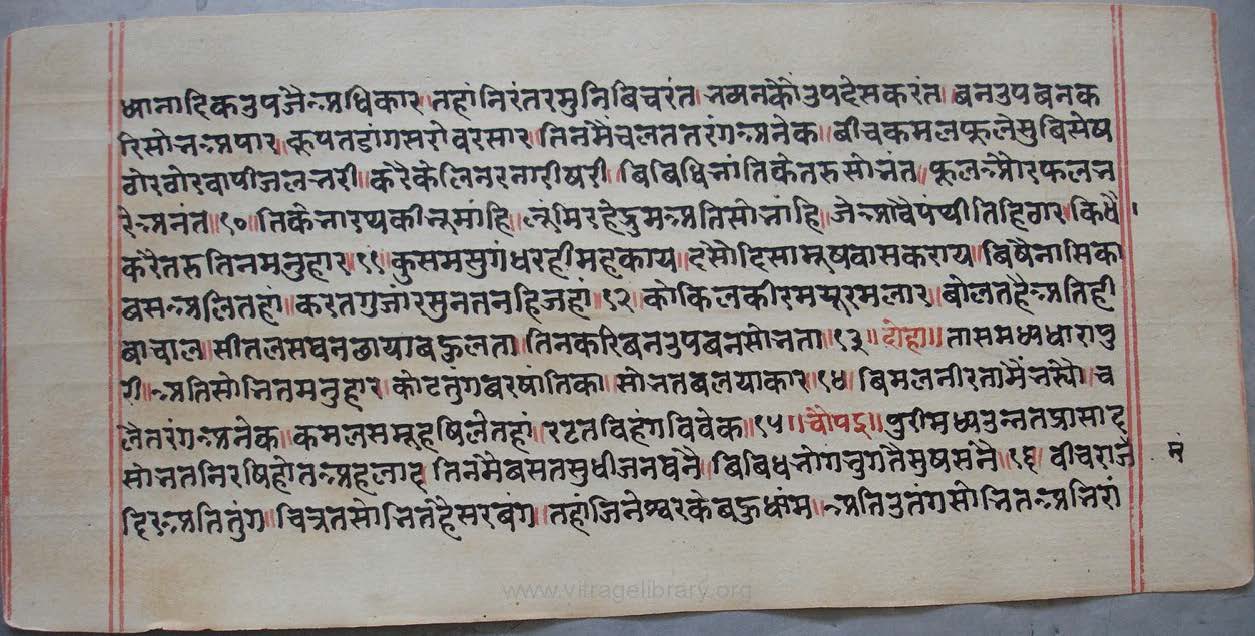 ध्यानादिक उपजै अधिकार ॥ तहां निरंतर मुनि बिचरंत ॥ भगनकौं उपदेस करंत ॥ बन उपबन क
रि सोभ अपार ॥ कूप तडाग सरोवर सार ॥ तिनमैं चलत तरंग अनेक ॥ बीच कमल फूले सु बिसेष
ठोर ठोर वापी जल भरी ॥ करै केलि नर नारी षरी ॥ बिबिधि भांति के तरु सोभंत ॥ फूल और फल भ
रे अनंत ॥१०॥ ति के भार थकी भू मांहि ॥ भूंमि रहे द्रुम अति सोभांहि ॥ जे आवै पंथी तिहि ठार ॥ किधौं
करै तरु तिन मनुहार ॥११॥ कुसम सुगंध रही महकाय ॥ दसौ दिसा मुष वास कराय ॥ बिषै नासिका
बस अलि तहां ॥ करत गुजांर सुनत नहि जहां ॥१२॥ कोकिल कीर मयूर मलार ॥ बोलत है अति ही
बाचाल ॥ सीतल सघन छाया बकुलता ॥ तिन करि बन उपबन सोभता ॥१३॥ दोहा ॥ तास मध्य धारापु
री ॥ अति सोभित मनुहार ॥ कोट तुंग बर षातिका ॥ सोभत बलयाकार ॥१४॥ बिमल नीर तामैं भस्यौ ॥ च
लै तरंग अनेक ॥ कमल समूह षिले तहां ॥ रटत विहंग विवेक ॥१५॥ चौपइ ॥ पुरी मध्य उन्नत प्रासाद
सोभत निरषि होत अहलाद ॥ तिनमै बसत सुधीजन घनै ॥ बिबिध भोग भुगतै सुष सनै ॥१६॥ वीच राजै
मं
दिर अति तुंग ॥ चित्रत सोभित है सरबंग ॥ तहां जिनेश्वर के बहु धांम ॥ अति उतंग सोभित अभिरां
www.vitragelibrary.org